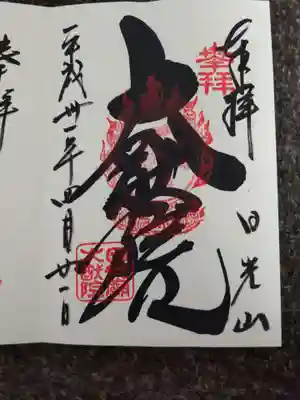 奉拝 日光山
奉拝
大猷院
平成卅一年四月廿一日